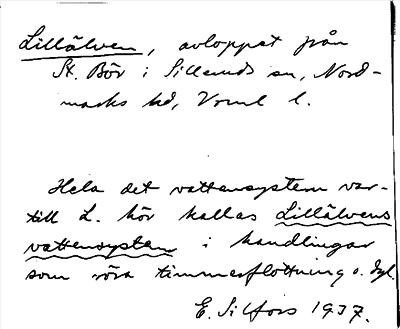 Lillälven, avloppet från
St. Bör i Silleruds sn, Nord-
marks hd, Vrml l.
Hela det vattensystem var-
till L. hör kallas Lillälvens
vattensystem i handlingar
som röra timmerflottning o. dyl.
E. Silfors 1937.